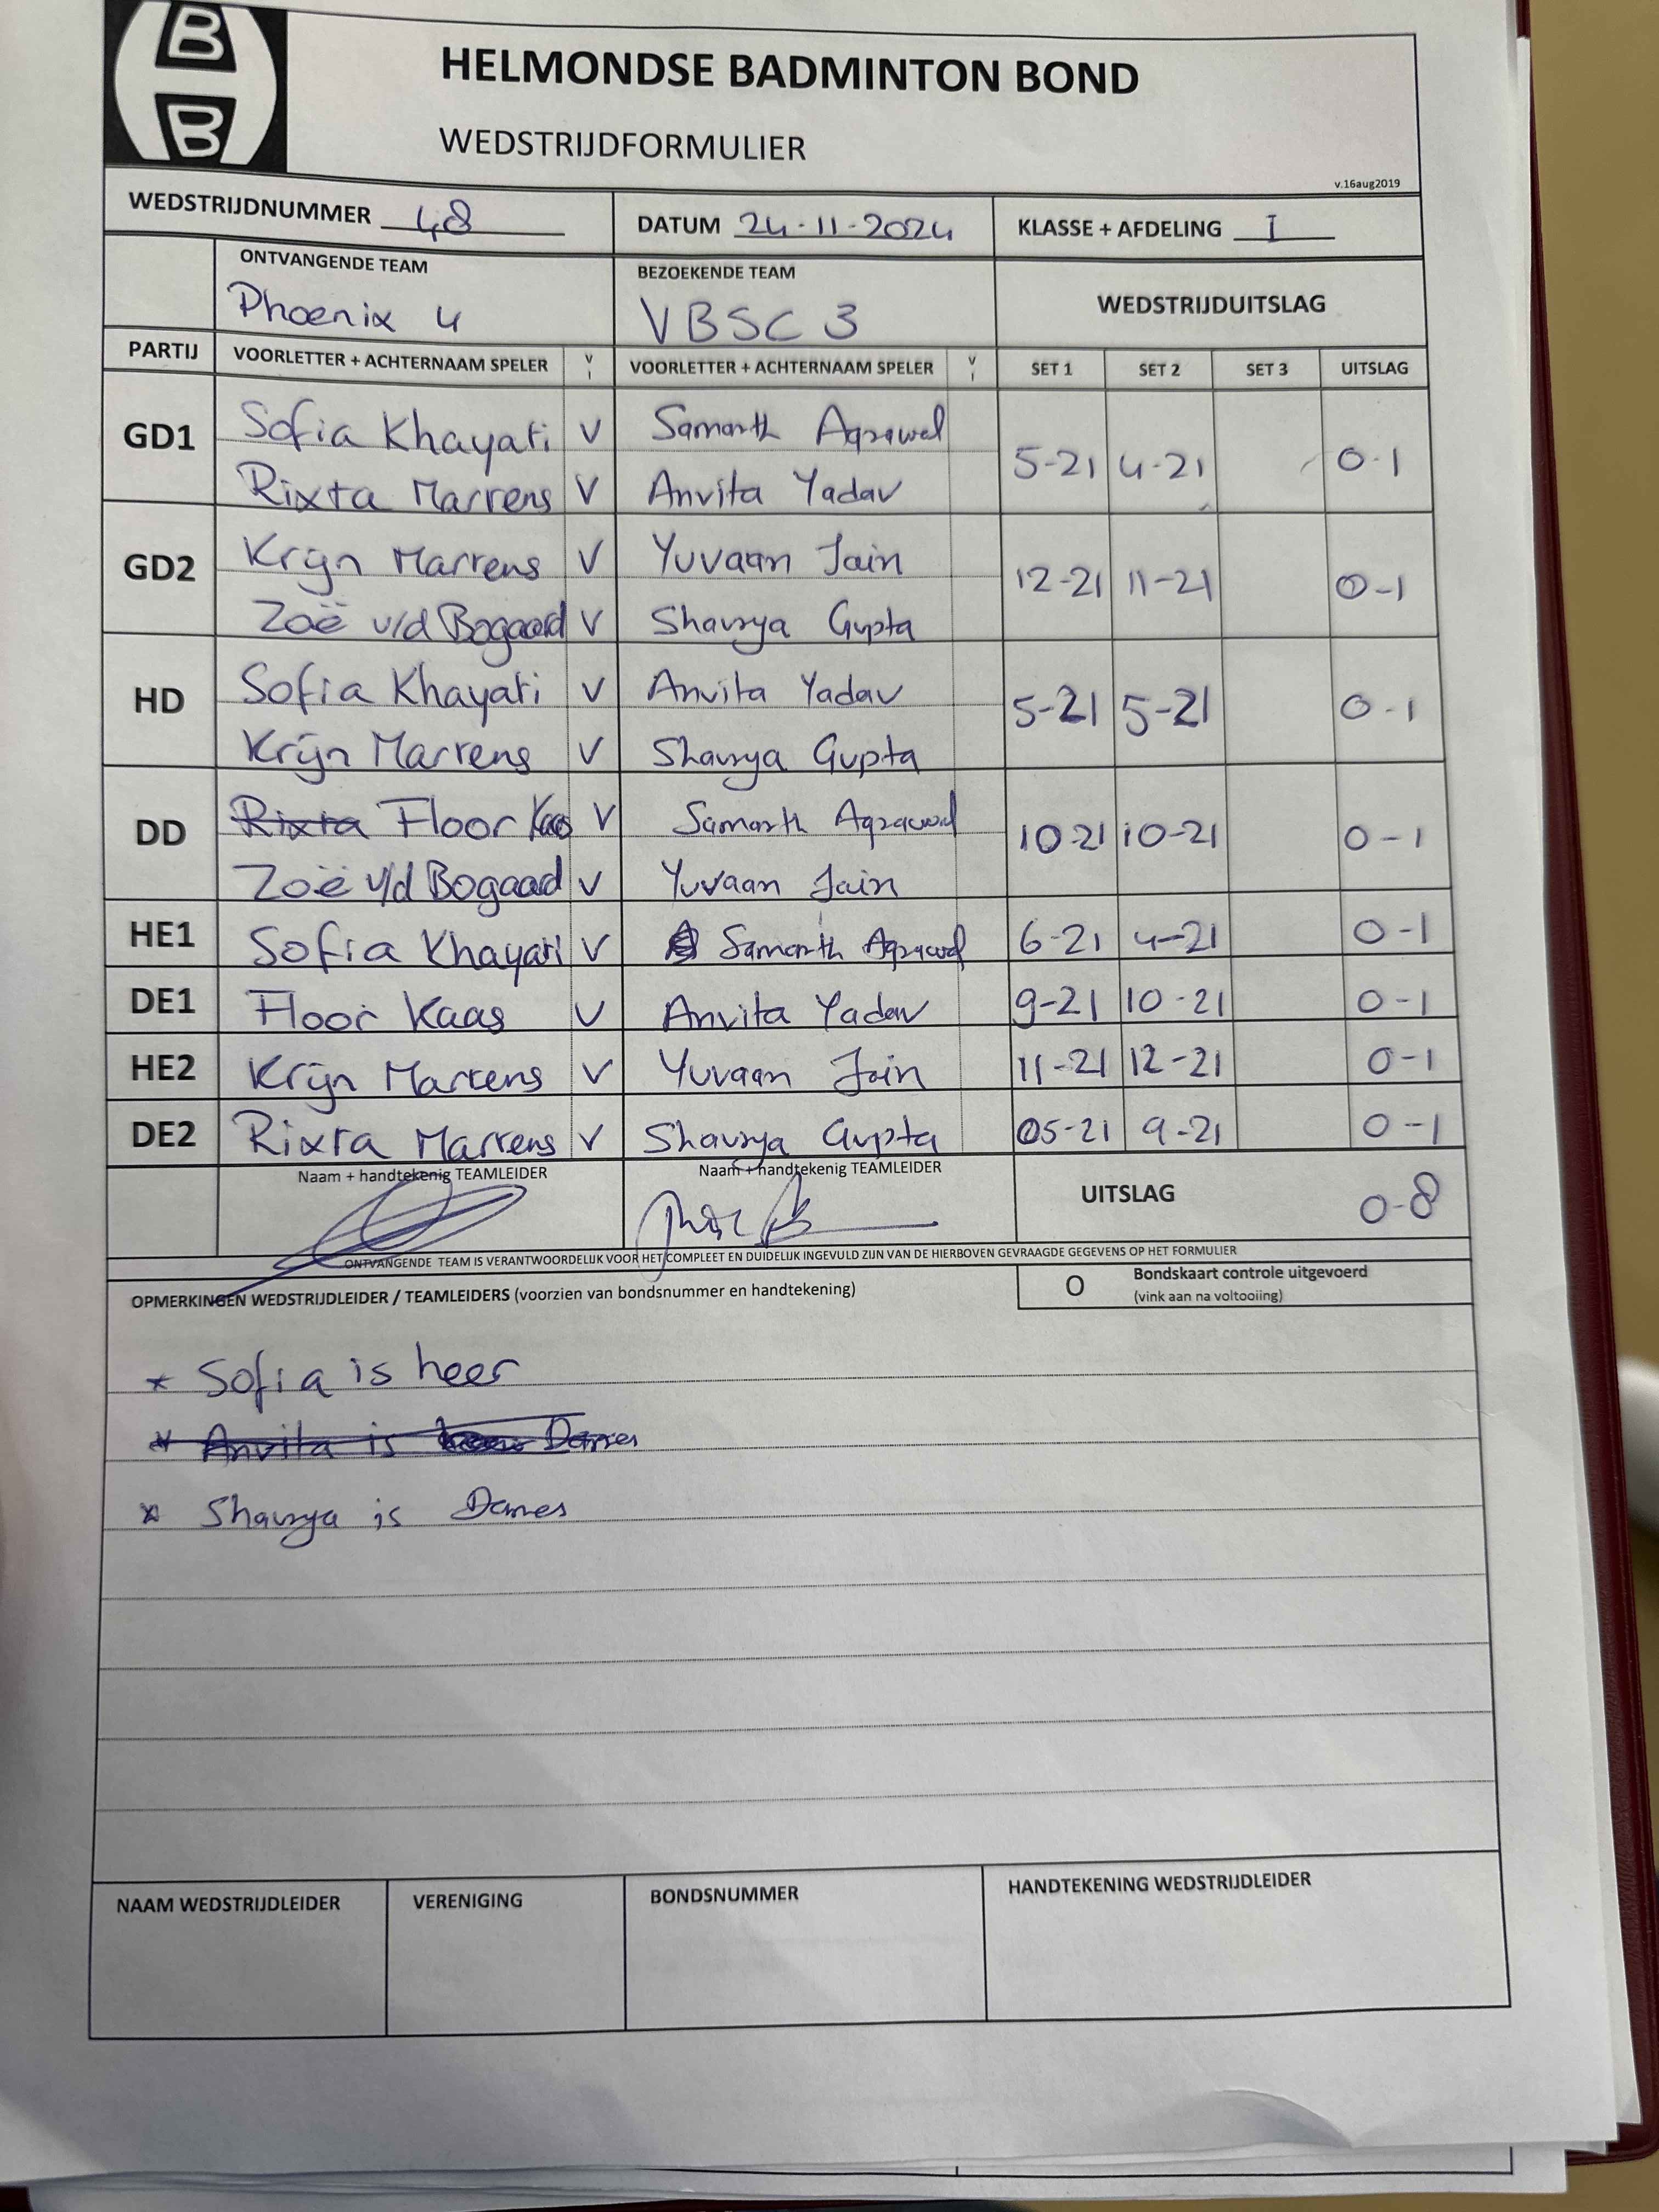 B
B
HELMONDSE BADMINTON BOND
WEDSTRIJDFORMULIER
v.16aug2019
WEDSTRIJDNUMMER 48 DATUM 24-11-2024 KLASSE + AFDELING I
ONTVANGENDE TEAM BEZOEKENDE TEAM WEDSTRIJDUITSLAG
Phoenix 4 VBSC 3
PARTIJ VOORLETTER + ACHTERNAAM SPELER V I VOORLETTER + ACHTERNAAM SPELER V I SET 1 SET 2 SET 3 UITSLAG
GD1 Sofia Khayati V Samarth Agrawal 5-21 4-21 0-1
Rixta Martens V Anvita Yadav
GD2 Krijn Martens V Yuvaan Jain 12-21 11-21 0-1
Zoë v/d Bogaard V Shaurya Gupta
HD Sofia Khayati V Anvita Yadav 5-21 5-21 0-1
Krijn Martens V Shaurya Gupta
DD Rixta Floor Kaas V Samarth Agrawal 10-21 10-21 0-1
Zoë v/d Bogaad V Yuvaan Jain
HE1 Sofia Khayati V Samarth Agrawal 6-21 4-21 0-1
DE1 Floor Kaas V Anvita Yadav 9-21 10-21 0-1
HE2 Krijn Martens V Yuvaan Jain 11-21 12-21 0-1
DE2 Rixta Martens V Shaurya Gupta 05-21 9-21 0-1
Naam + handtekenig TEAMLEIDER Naam + handtekenig TEAMLEIDER UITSLAG 0-8
ONTVANGENDE TEAM IS VERANTWOORDELIJK VOOR HET COMPLEET EN DUIDELIJK INGEVULD ZIJN VAN DE HIERBOVEN GEVRAAGDE GEGEVENS OP HET FORMULIER
OPMERKINGEN WEDSTRIJDLEIDER / TEAMLEIDERS (voorzien van bondsnummer en handtekening) O Bondskaart controle uitgevoerd
(vink aan na voltooiing)
* Sofia is heer
* Anvita is Dames
* Shaurya is Dames
NAAM WEDSTRIJDLEIDER VERENIGING BONDSNUMMER HANDTEKENING WEDSTRIJDLEIDER